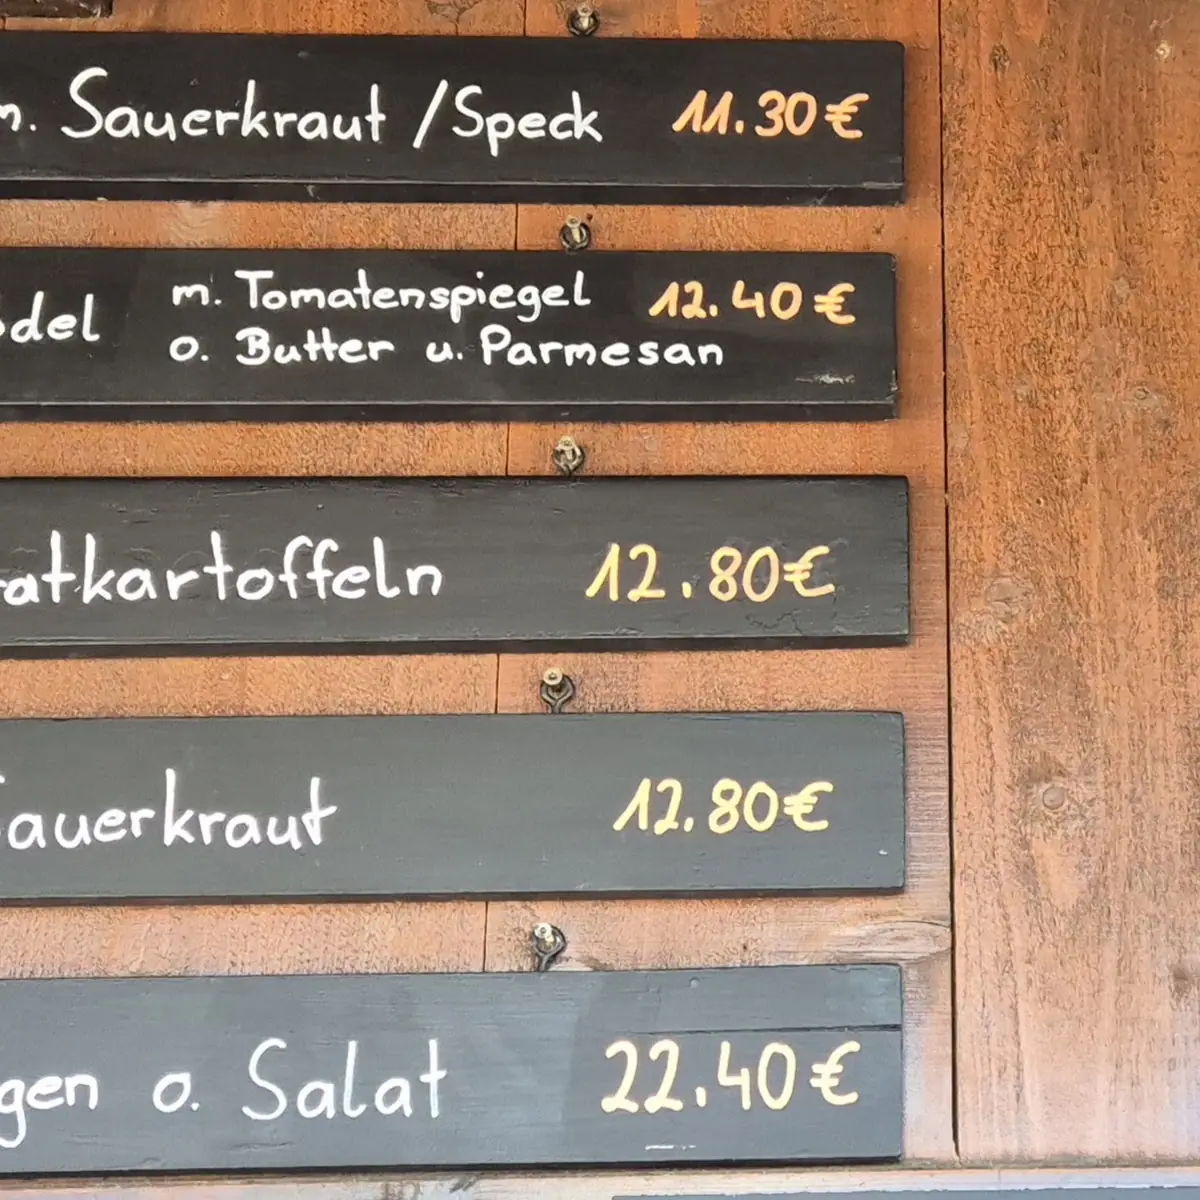 m. Sauerkraut / Speck 11.30 €
m. Tomatenspiegel 12.40 €
del o. Butter u. Parmesan
atkartoffeln 12.80 €
auerkraut 12.80 €
gen o. Salat 22.40 €